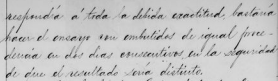 respondía á toda la debida exactitud, bastaría
hacer el ensayo con embutidos de igual proce-
dencia en dos dias consecutivos, en la seguridad
de que el resultado seria distinto.